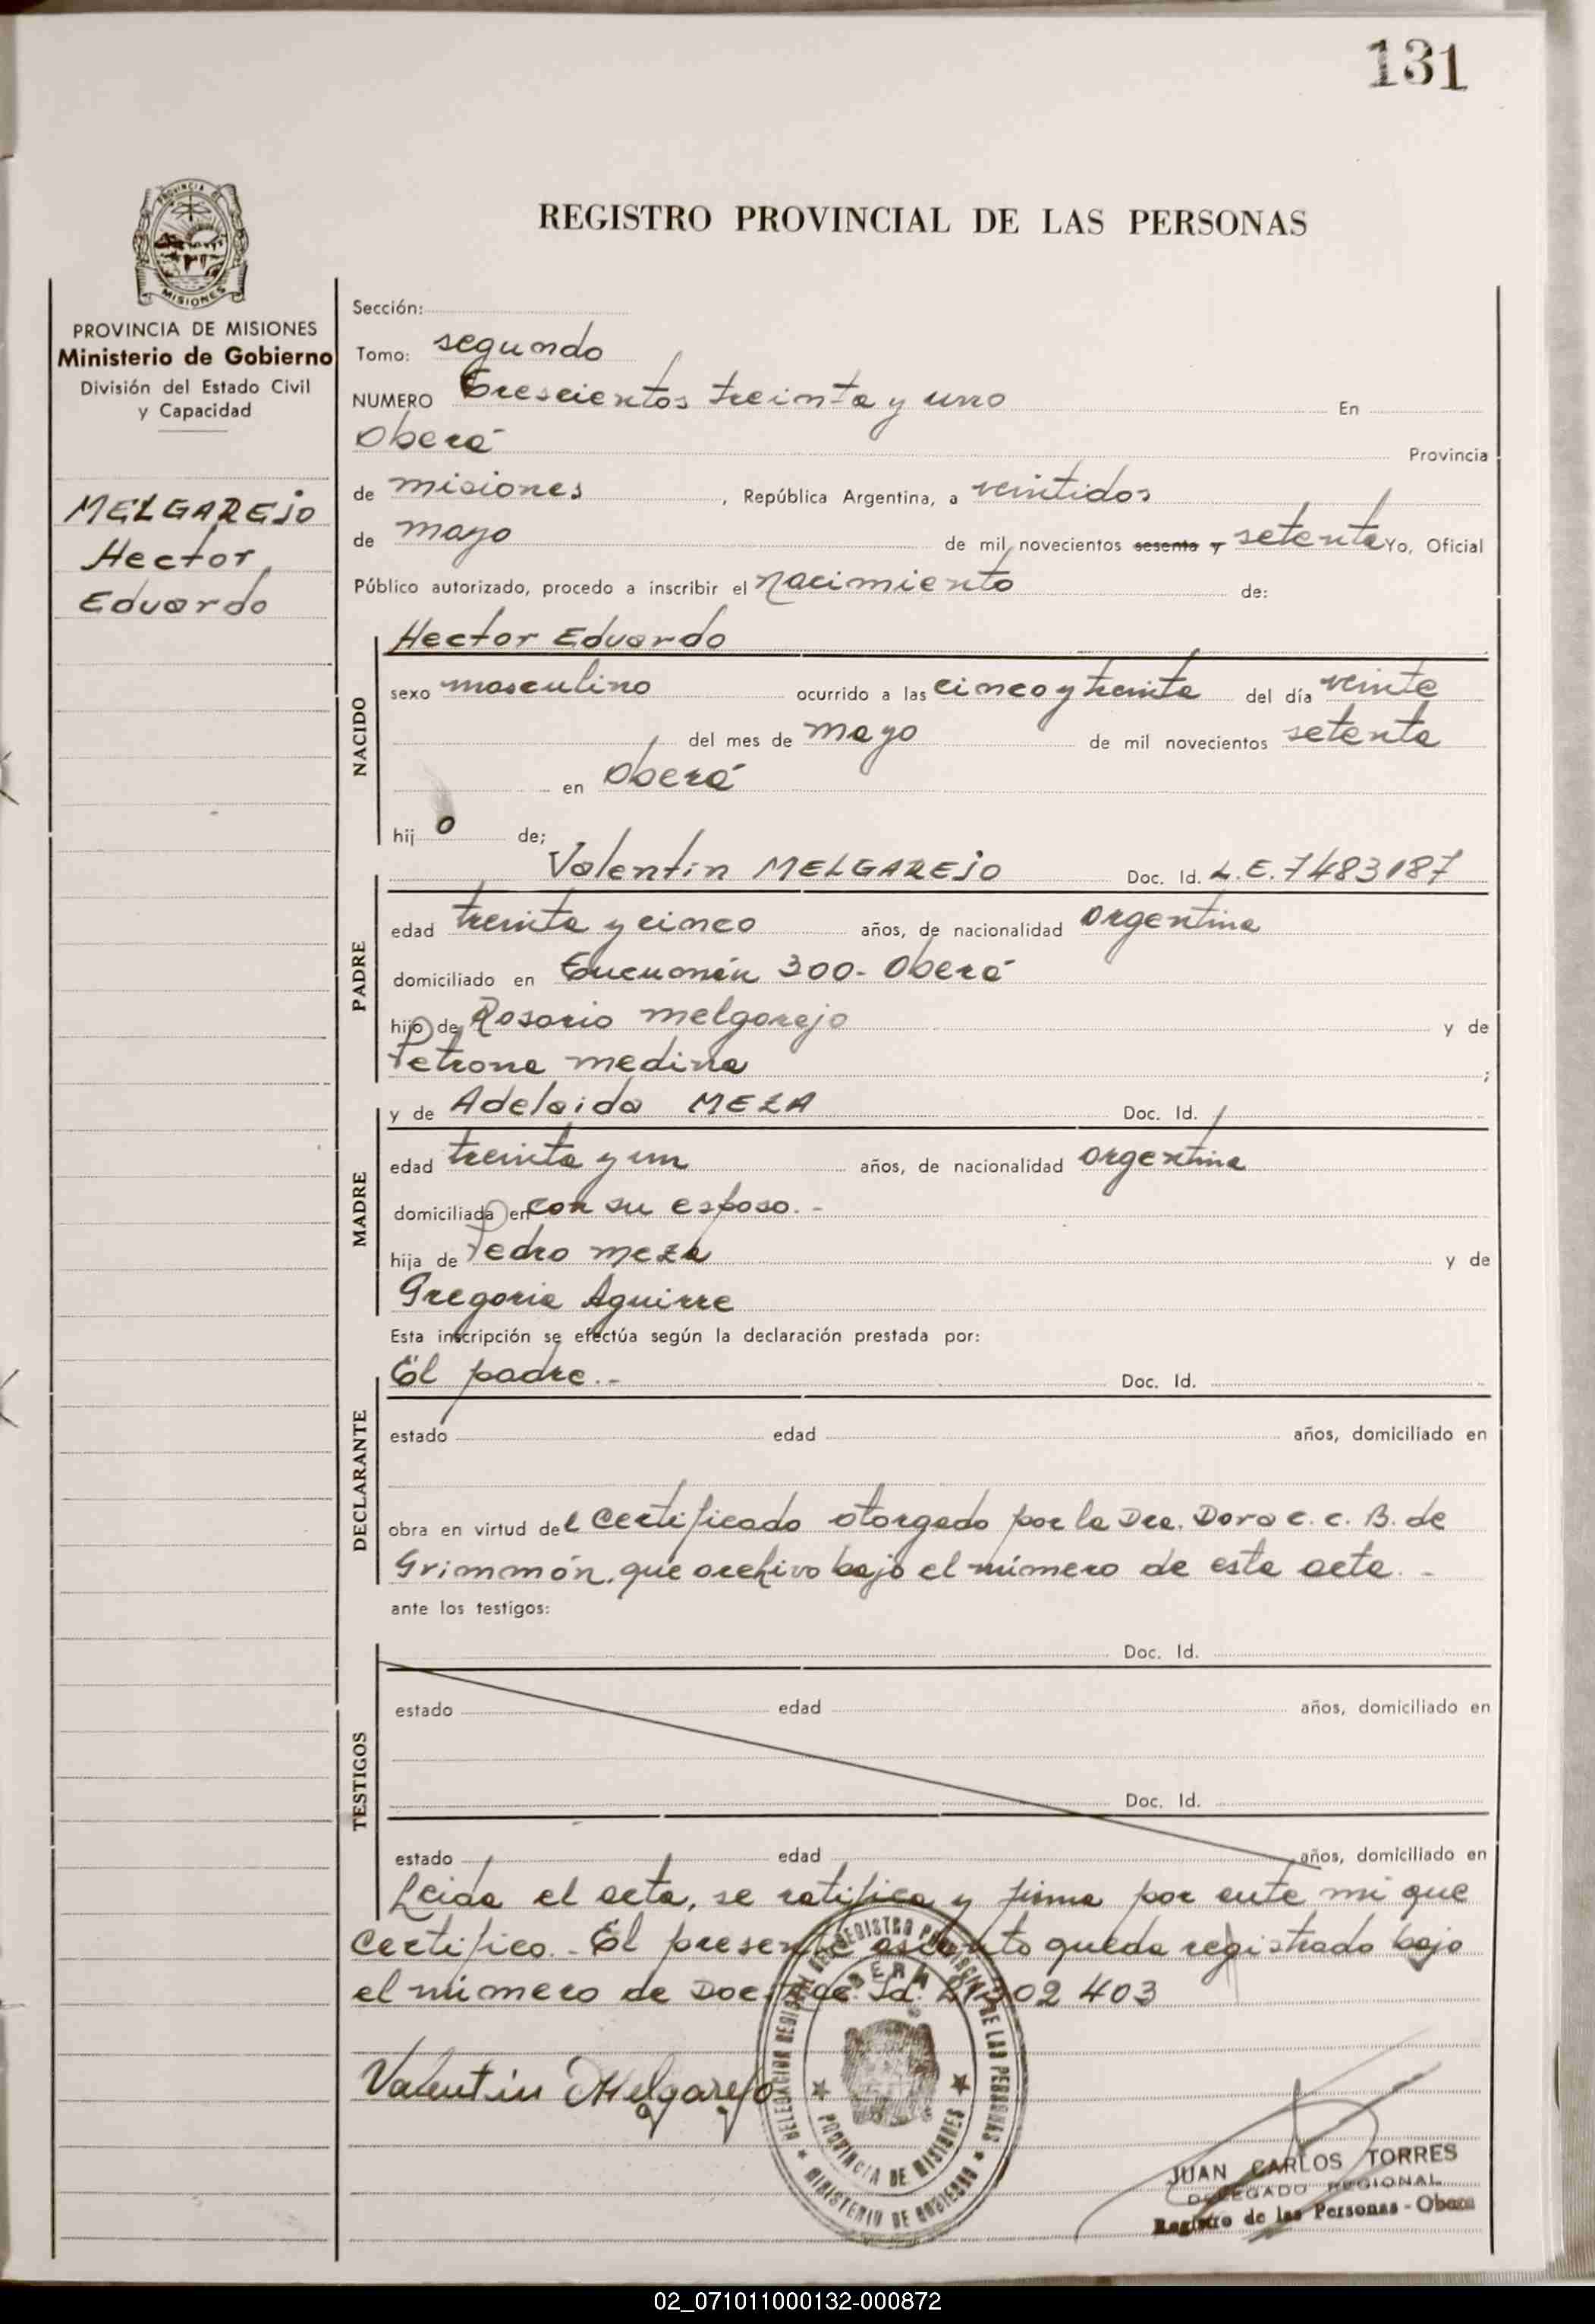 131
PROVINCIA DE
MISIONES
REGISTRO PROVINCIAL DE LAS PERSONAS
PROVINCIA DE MISIONES
Ministerio de Gobierno
División del Estado Civil
y Capacidad
MELGAREJO
Hector
Eduardo
Sección:
Tomo: segundo
NUMERO trescientos treinta y uno En
Oberá Provincia
de misiones, República Argentina, a veintidos
de mayo de mil novecientos sesenta y setenta Yo, Oficial
Público autorizado, procedo a inscribir el nacimiento de:
Hector Eduardo
NACIDO
sexo masculino ocurrido a las cinco y treinta del día veinte
del mes de mayo de mil novecientos setenta
en Oberá
hijo de;
Valentín MELGAREJO Doc. Id. L.E. 7483187
PADRE
edad treinta y cinco años, de nacionalidad argentina
domiciliado en Tucumán 300- Oberá
hijo de Rosario melgarejo y de
Petrona medina;
y de Adelaida MEZA Doc. Id. /
MADRE
edad treinta y un años, de nacionalidad argentina
domiciliada en con su esposo.-
hija de Pedro meza y de
Gregoria Aguirre
Esta inscripción se efectúa según la declaración prestada por:
El padre.- Doc. Id.
DECLARANTE
estado edad años, domiciliado en
obra en virtud del certificado otorgado por la Dra. Dora C. C. B. de
Grimmón, que archivo bajo el número de esta acta.-
ante los testigos:
Doc. Id.
TESTIGOS
estado edad años, domiciliado en
Doc. Id.
estado edad años, domiciliado en
Leida el acta, se ratifica y firma por ante mi que
certifico.- El presente asiento queda registrado bajo
el número de Doc. Id. 21302403
Valentin Melgarejo
DELEGACION REGIONAL DEL REGISTRO PROVINCIAL DE LAS PERSONAS
OBERA
PROVINCIA DE MISIONES
MINISTERIO DE GOBIERNO
JUAN CARLOS TORRES
DELEGADO REGIONAL
Registro de las Personas - Obera
02_071011000132-000872